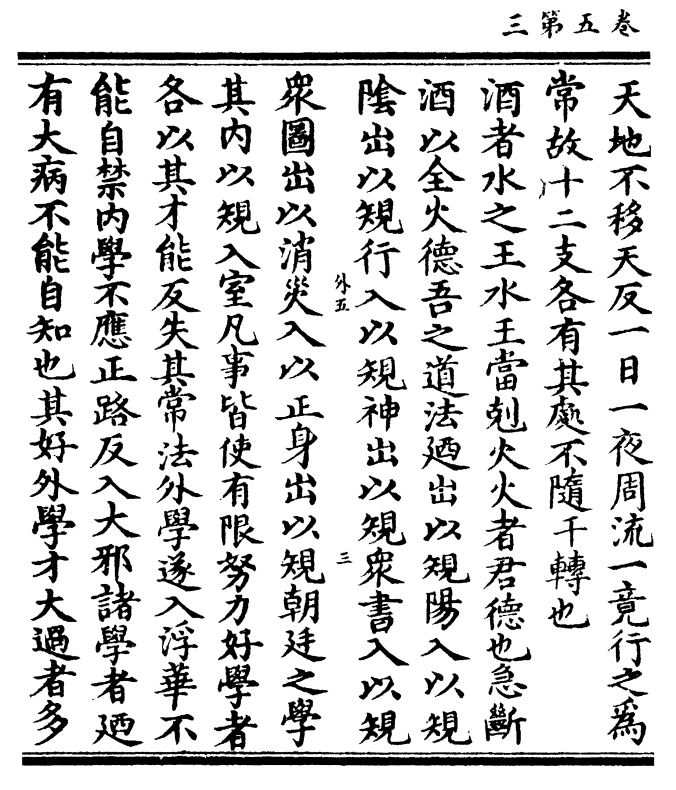 卷五第三
天地不移天反一日一夜周流一竟行之為
常故十二支各有其處不隨干轉也
酒者水之王水王當剋火火者君德也急斷
酒以全火德吾之道法廼出以規陽入以規
陰出以規行入以規神出以規衆書入以規
外五
三
衆圖出以消災入以正身出以規朝廷之學
其內以規入室凡事皆使有限努力好學者
各以其才能反失其常法外學遂入浮華不
能自禁內學不應正路反入大邪諸學者廼
有大病不能自知也其好外學才大過者多